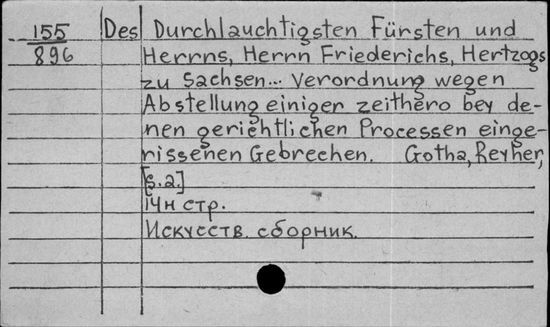 155 Des Durchlauchtigsten Fürsten und
896 Herrns, Herrn Friederichs, Hertzogs
zu Sachsen... Verordnung wegen
Abstellung einiger zeithero bey de-
nen gerichtlichen Processen einge-
rissenen Gebrechen. Gotha, Reyher,
[s.a.]
14н стр.
Искусств. сборник.